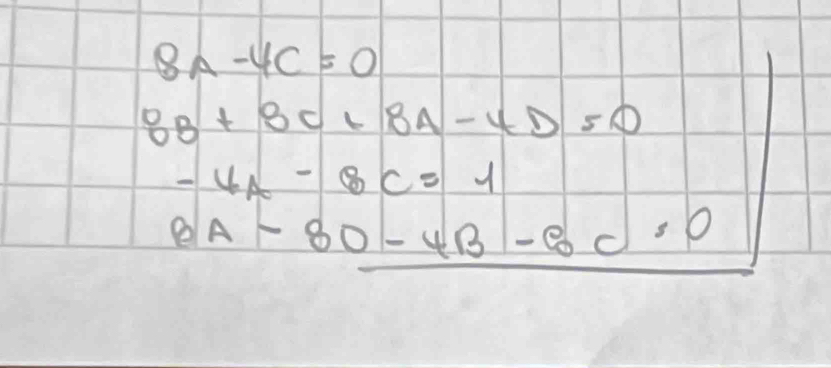 8A - 4C = 0
8B + 8C + 8A - 4D = 0
- 4A - 8C = 1
8A - 8D - 4B - 8C = 0